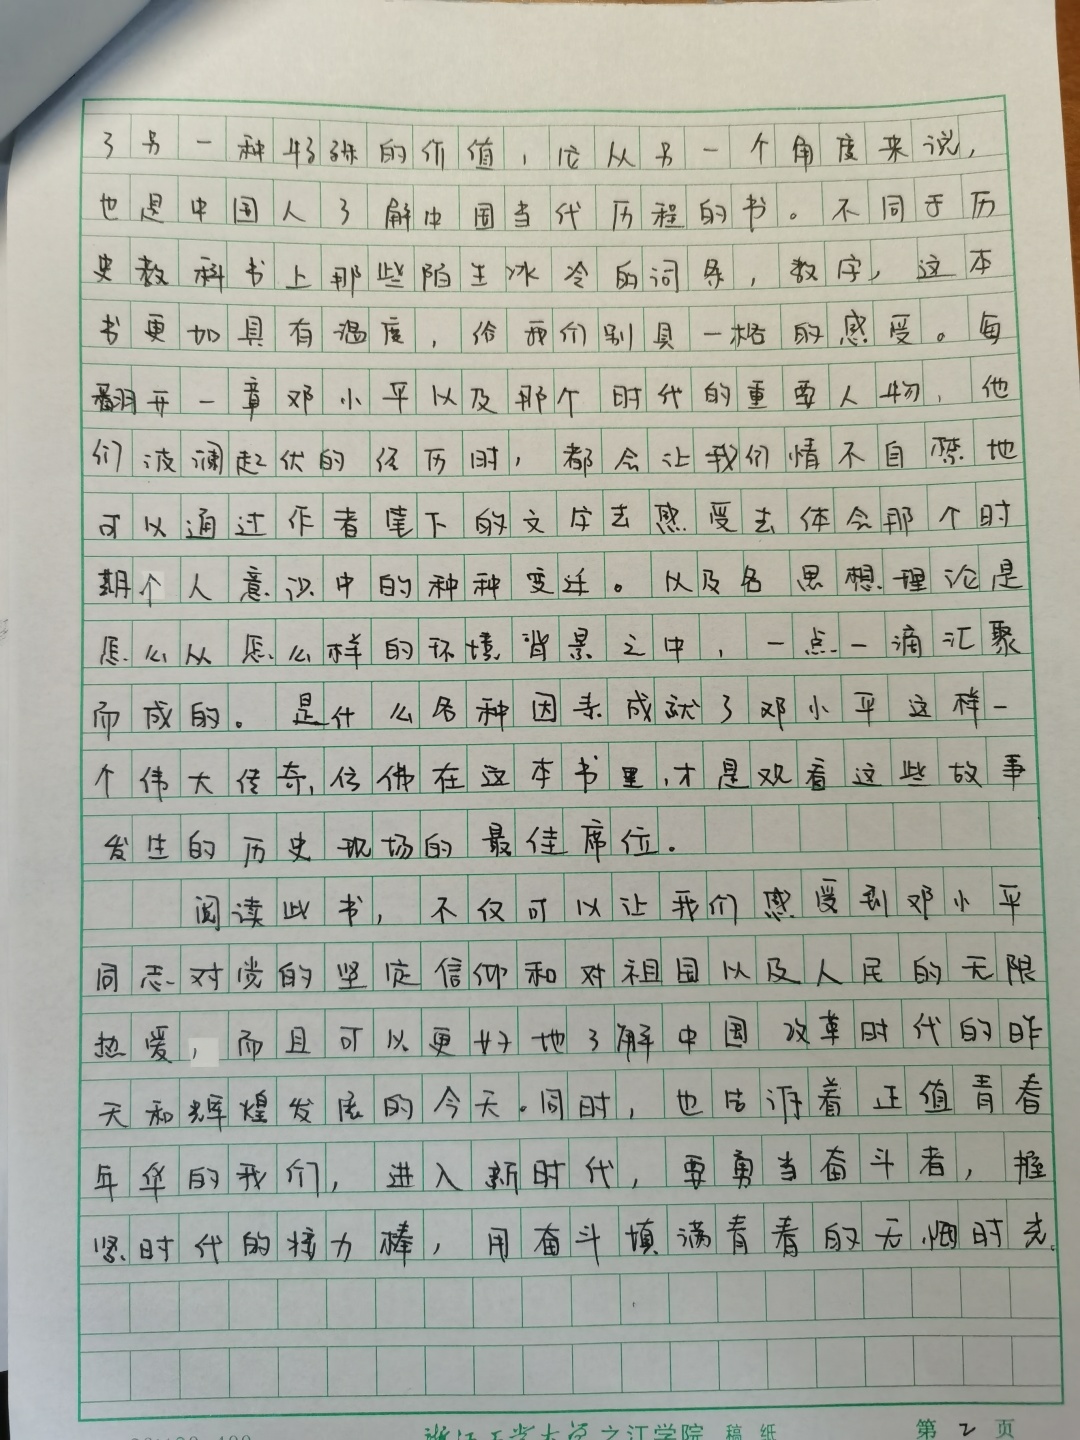 了另一种特殊的价值，它从另一个角度来说，
也是中国人了解中国当代历程的书。不同于历
史教科书上那些陌生冰冷的词条，数字，这本
书更加具有温度，给我们别具一格的感受。每
翻开一章邓小平以及那个时代的重要人物，他
们波澜起伏的经历时，都会让我们情不自禁地
可以通过作者笔下的文字去感受去体会那个时
期个人意识中的种种变迁。以及各思想理论是
怎么从怎么样的环境背景之中，一点一滴汇聚
而成的。是什么各种因素成就了邓小平这样一
个伟大传奇，仿佛在这本书里，才是观看这些故事
发生的历史现场的最佳席位。
阅读此书，不仅可以让我们感受到邓小平
同志对党的坚定信仰和对祖国以及人民的无限
热爱，而且可以更好地了解中国改革时代的昨
天和辉煌发展的今天。同时，也告诉着正值青春
年华的我们，进入新时代，要勇当奋斗者，握
紧时代的接力棒，用奋斗填满青春的无悔时光。
浙江工业大学之江学院 稿 纸 第 2 页